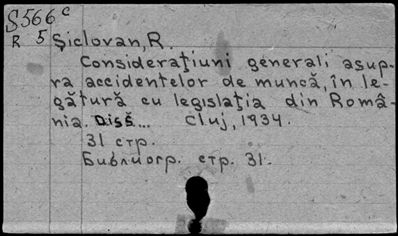 S566 c
R 5 Şiclovan, R.
Consideraţiuni generali asup-
ra accidentelor de muncă, în le-
gătură cu legislaţia din Româ-
nia. Diss... Cluj, 1934.
31 стр.
Библиогр. стр. 31.